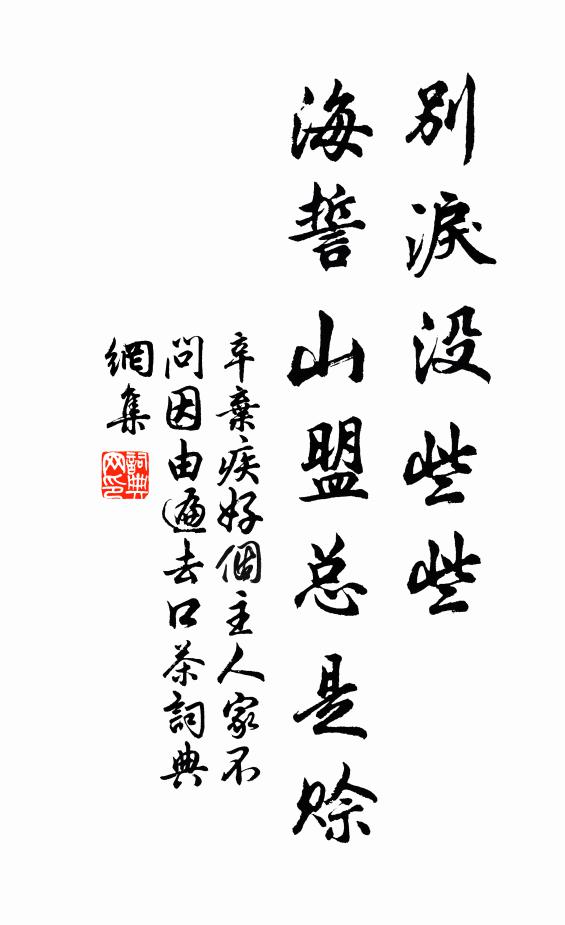 別淚没些些
海誓山盟总是賒
辛棄疾好個主人家不
問因由遍去口茶詞典
網集
詞典
网印